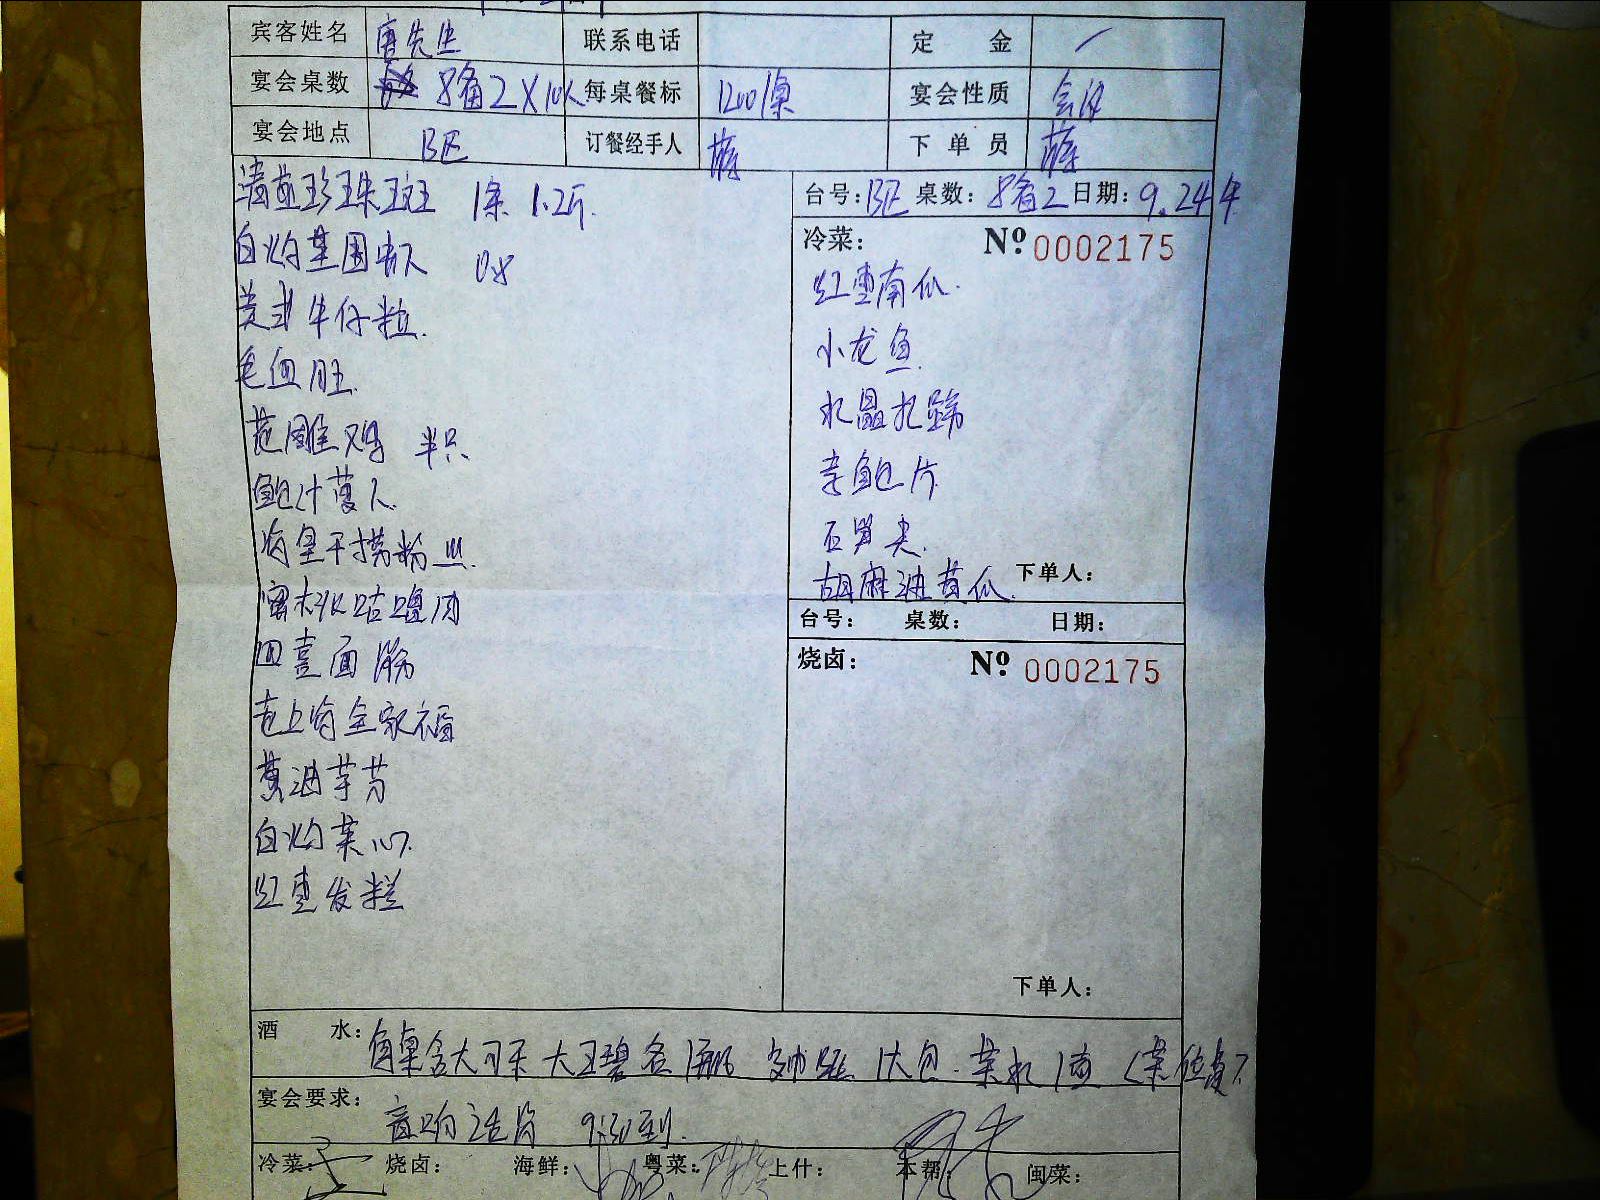 宾客姓名 唐先生 联系电话 定 金 /
宴会桌数 8备2X10人 每桌餐标 1200/桌 宴会性质 会议
宴会地点 B区 订餐经手人 下单员
清蒸珍珠斑 1条 1.2斤
台号: B区 桌数: 8备2 日期: 9.24午
白灼基围虾 0.8
冷菜: Nº 0002175
美式牛仔粒
毛血旺
花雕鸡 半只
鲍汁
海皇干捞粉丝
蜜桃咕噜肉
四喜面筋
老上海全家福
黄油芋艿
白灼菜心
红枣发糕
红枣南瓜
小龙鱼
水晶扎蹄
鲍片
石笋尖
胡麻油黄瓜
下单人:
台号: 桌数: 日期:
烧卤: Nº 0002175
下单人:
酒 水: 每桌含大可乐 大王碧各1瓶 1大包. 茶水1壶
宴会要求: 音响话筒 9:30到.
冷菜: 烧卤: 海鲜: 粤菜: 上什: 本帮: 闽菜: